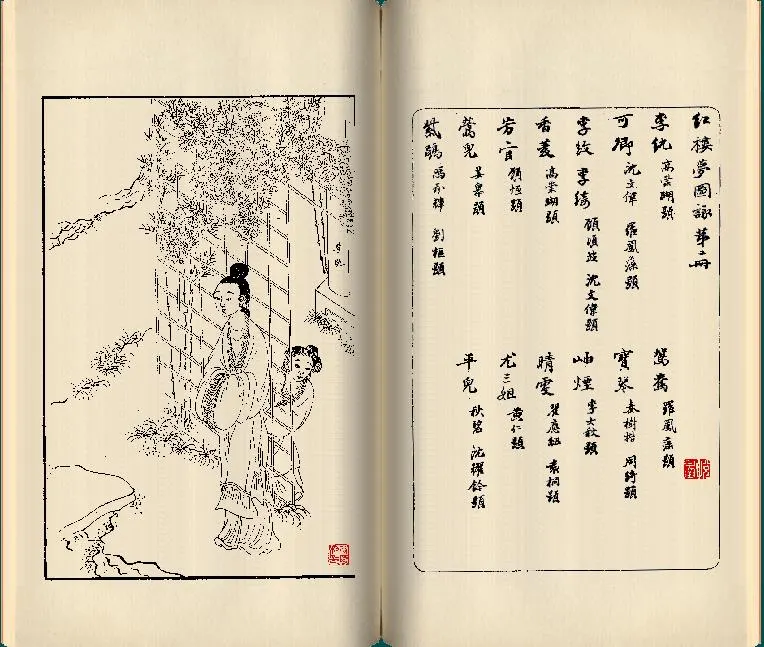 紅樓夢圖詠 第二冊
李紈 高崇瑚題 鴛鴦 羅鳳藻題
可卿 沈文偉 羅鳳藻題 寶琴 周綺題
李紋 李綺 沈文偉題 岫煙 題
香菱 高崇瑚題 晴雯 瞿應紹 袁桐題
芳官 顧恒題 尤三姐 黃仁題
鶯兒 姜皋題 平兒 秋碧 沈耀 題
紫鵑 馮承輝 劉樞題
李紈